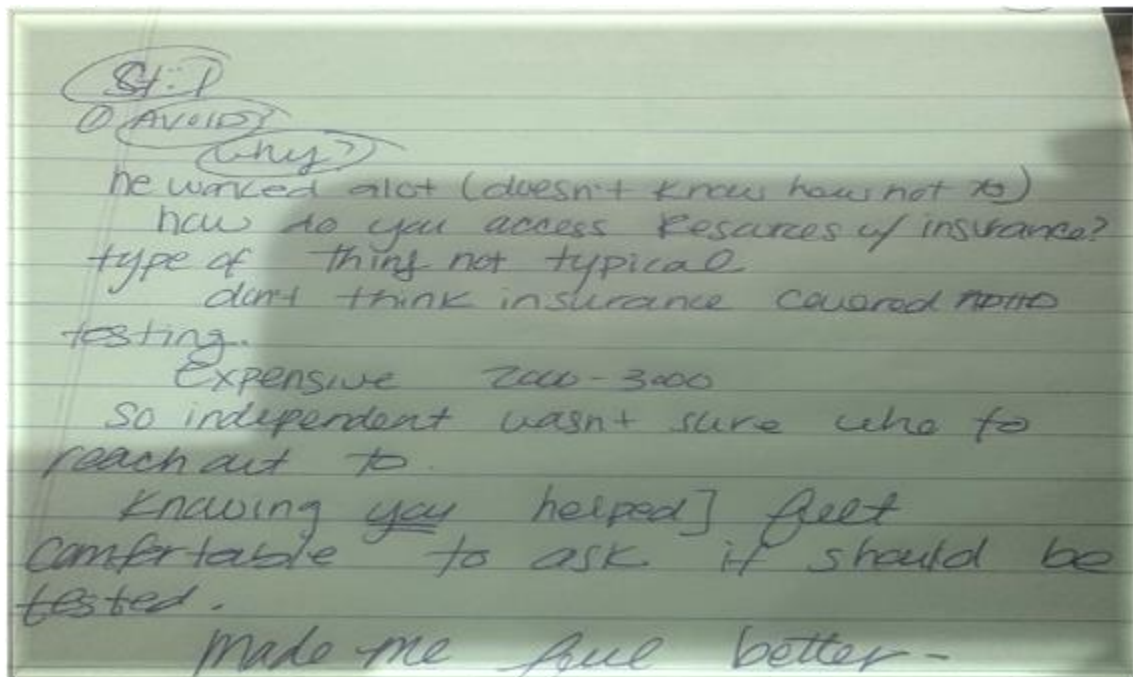 St: 1
① AVOID?
Why?
he worked alot (doesn't know how not to)
how do you access Resources w/ insurance?
type of thing not typical
don't think insurance covered
testing.
Expensive 2000-3000
so independent wasn't sure who to
reach out to.
Knowing you helped] felt
comfortable to ask if should be
tested.
made me feel better-